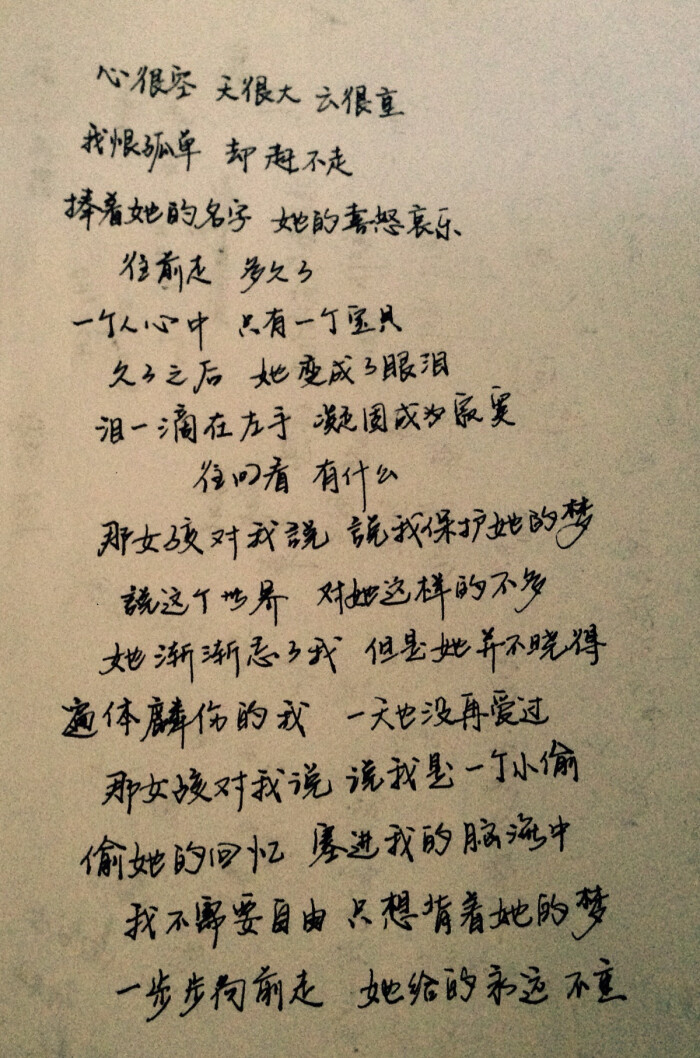 心很空 天很大 云很重
我恨孤单 却赶不走
捧着她的名字 她的喜怒哀乐
往前走 多久了
一个人心中 只有一个宝贝
久了之后 她变成了眼泪
泪一滴在左手 凝固成为寂寞
往回看 有什么
那女孩对我説 説我保护她的梦
説这个世界 对她这样的不多
她渐渐忘了我 但是她并不晓得
遍体麟伤的我 一天也没再爱过
那女孩对我说 说我是一个小偷
偷她的回忆 塞进我的脑海中
我不需要自由 只想背着她的梦
一步步向前走 她给的永远不重